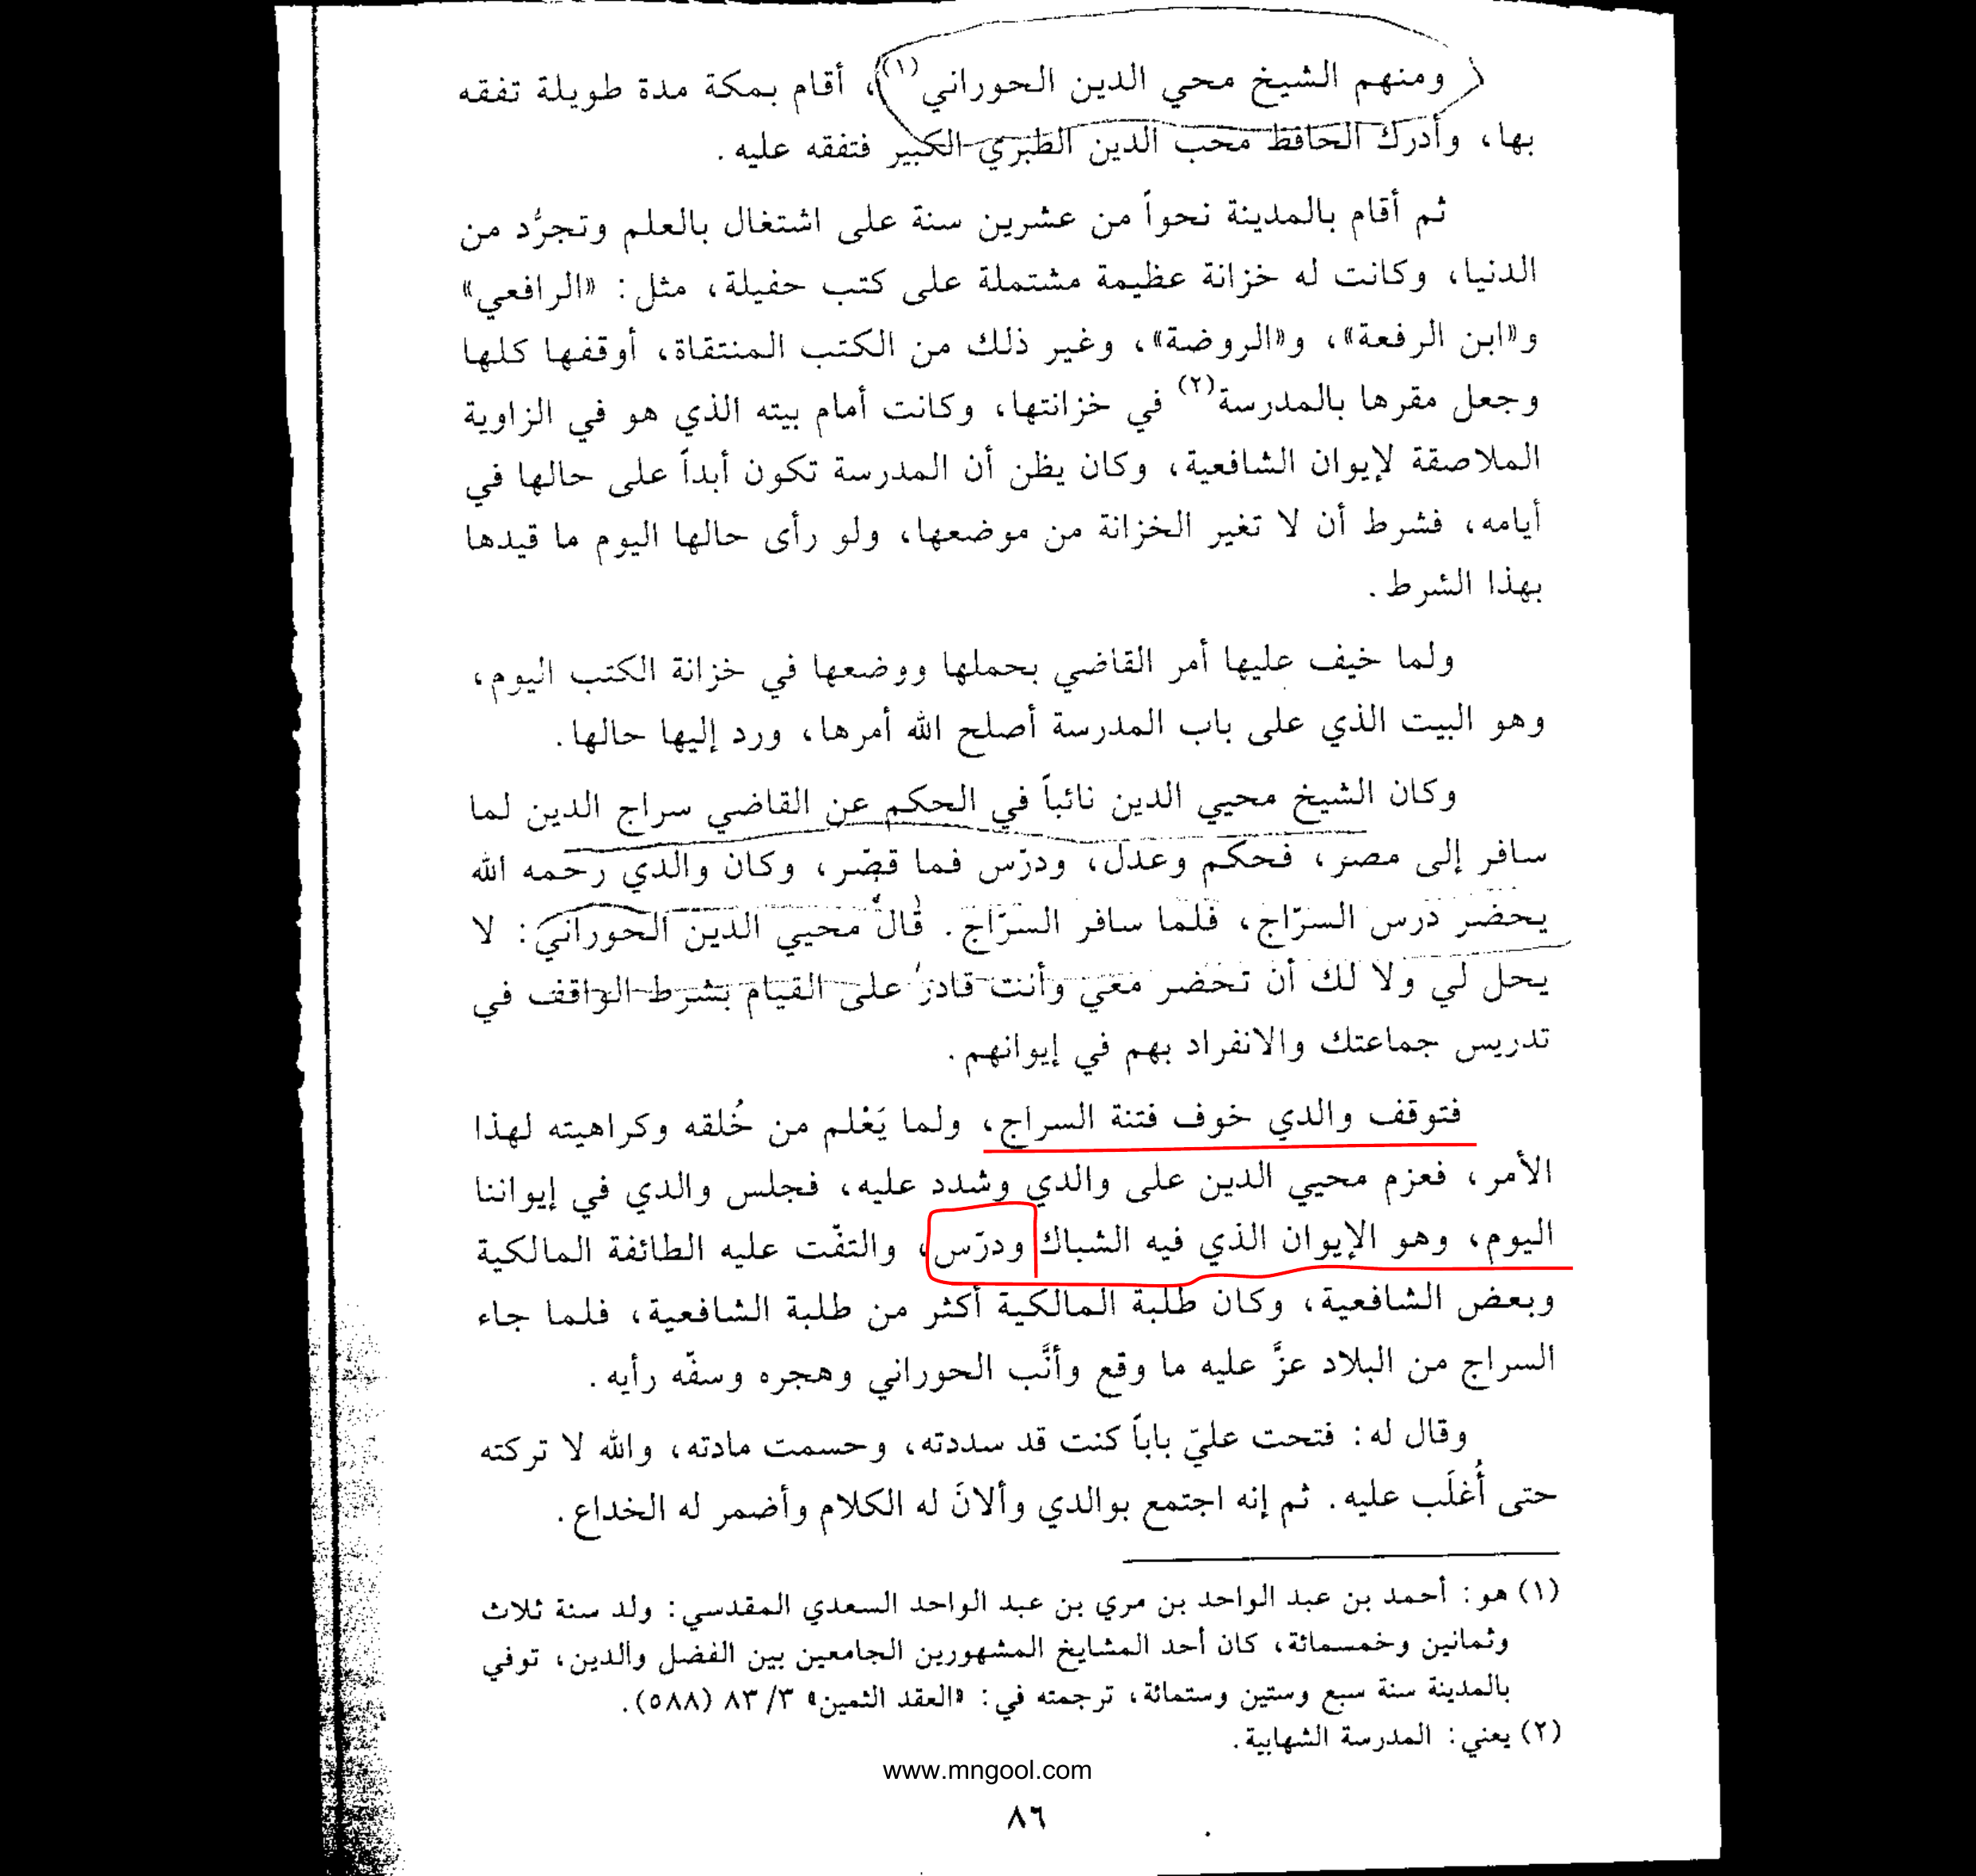 ومنهم الشيخ محي الدين الحوراني(١)، أقام بمكة مدة طويلة تفقه
بها، وأدرك الحافظ محب الدين الطبري الكبير فتفقه عليه.
ثم أقام بالمدينة نحواً من عشرين سنة على اشتغال بالعلم وتجرُّد من
الدنيا، وكانت له خزانة عظيمة مشتملة على كتب حفيلة، مثل: «الرافعي»
و«ابن الرفعة»، و«الروضة»، وغير ذلك من الكتب المنتقاة، أوقفها كلها
وجعل مقرها بالمدرسة(٢) في خزانتها، وكانت أمام بيته الذي هو في الزاوية
الملاصقة لإيوان الشافعية، وكان يظن أن المدرسة تكون أبداً على حالها في
أيامه، فشرط أن لا تغير الخزانة من موضعها، ولو رأى حالها اليوم ما قيدها
بهذا الشرط.
ولما خيف عليها أمر القاضي بحملها ووضعها في خزانة الكتب اليوم،
وهو البيت الذي على باب المدرسة أصلح الله أمرها، ورد إليها حالها.
وكان الشيخ محيي الدين نائباً في الحكم عن القاضي سراج الدين لما
سافر إلى مصر، فحكم وعدل، ودرّس فما قصّر، وكان والدي رحمه الله
يحضر درس السرّاج، فلما سافر السرّاج. قال محيي الدين الحوراني: لا
يحل لي ولا لك أن تحضر معي وأنت قادر على القيام بشرط الواقف في
تدريس جماعتك والانفراد بهم في إيوانهم.
فتوقف والدي خوف فتنة السراج، ولما يَعْلم من خُلقه وكراهيته لهذا
الأمر، فعزم محيي الدين على والدي وشدد عليه، فجلس والدي في إيواننا
اليوم، وهو الإيوان الذي فيه الشباك ودرّس، والتفّت عليه الطائفة المالكية
وبعض الشافعية، وكان طلبة المالكية أكثر من طلبة الشافعية، فلما جاء
السراج من البلاد عزَّ عليه ما وقع وأنَّب الحوراني وهجره وسفّه رأيه.
وقال له: فتحت عليّ باباً كنت قد سددته، وحسمت مادته، والله لا تركته
حتى أُغلَب عليه. ثم إنه اجتمع بوالدي وألانَ له الكلام وأضمر له الخداع.
(١) هو: أحمد بن عبد الواحد بن مري بن عبد الواحد السعدي المقدسي: ولد سنة ثلاث
وثمانين وخمسمائة، كان أحد المشايخ المشهورين الجامعين بين الفضل والدين، توفي
بالمدينة سنة سبع وستين وستمائة، ترجمته في: «العقد الثمين» ٣/ ٨٣ (٥٨٨).
(٢) يعني: المدرسة الشهابية.
www.mngool.com
٨٦